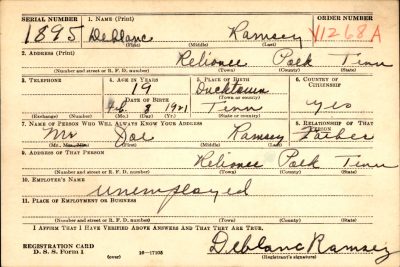 SERIAL NUMBER 1. NAME (Print) ORDER NUMBER
1895 Deblanc Ramsey V1268A
(First) (Middle) (Last)
2. ADDRESS (Print)
Reliance Polk Tenn
(Number and street or R. F. D. number) (Town) (County) (State)
3. TELEPHONE 4. AGE IN YEARS 5. PLACE OF BIRTH 6. COUNTRY OF CITIZENSHIP
19 Ducktown
DATE OF BIRTH (Town or county)
Feb. 8 1921 Tenn yes
(Exchange) (Number) (Mo.) (Day) (Yr.) (State or country)
7. NAME OF PERSON WHO WILL ALWAYS KNOW YOUR ADDRESS 8. RELATIONSHIP OF THAT PERSON
Mr Doe Ramsey Father
(Mr., Mrs., Miss) (First) (Middle) (Last)
9. ADDRESS OF THAT PERSON
Reliance Polk Tenn
(Number and street or R. F. D. number) (Town) (County) (State)
10. EMPLOYER'S NAME
Unemployed
11. PLACE OF EMPLOYMENT OR BUSINESS
(Number and street or R. F. D. number) (Town) (County) (State)
I AFFIRM THAT I HAVE VERIFIED ABOVE ANSWERS AND THAT THEY ARE TRUE.
REGISTRATION CARD Deblanc Ramsey
D. S. S. Form 1 (over) 16—17105 (Registrant's signature)